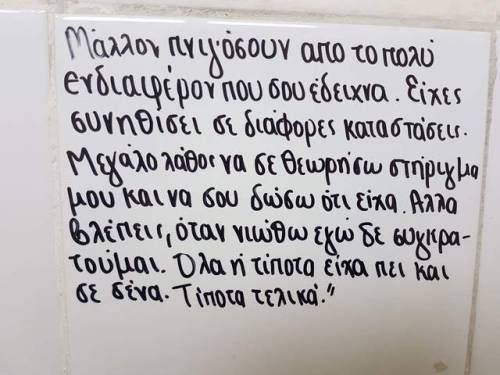 Μάλλον πνιγόσουν απο το πολύ
ενδιαφέρον που σου έδειχνα. Είχες
συνηθίσει σε διάφορες καταστάσεις.
Μεγάλο λάθος να σε θεωρήσω στήριγμα
μου και να σου δώσω ότι είχα. Αλλα
βλέπεις, όταν νιώθω εγώ δε συγκρα-
τούμαι. Όλα ή τίποτα είχα πει και
σε σένα. Τίποτα τελικά."